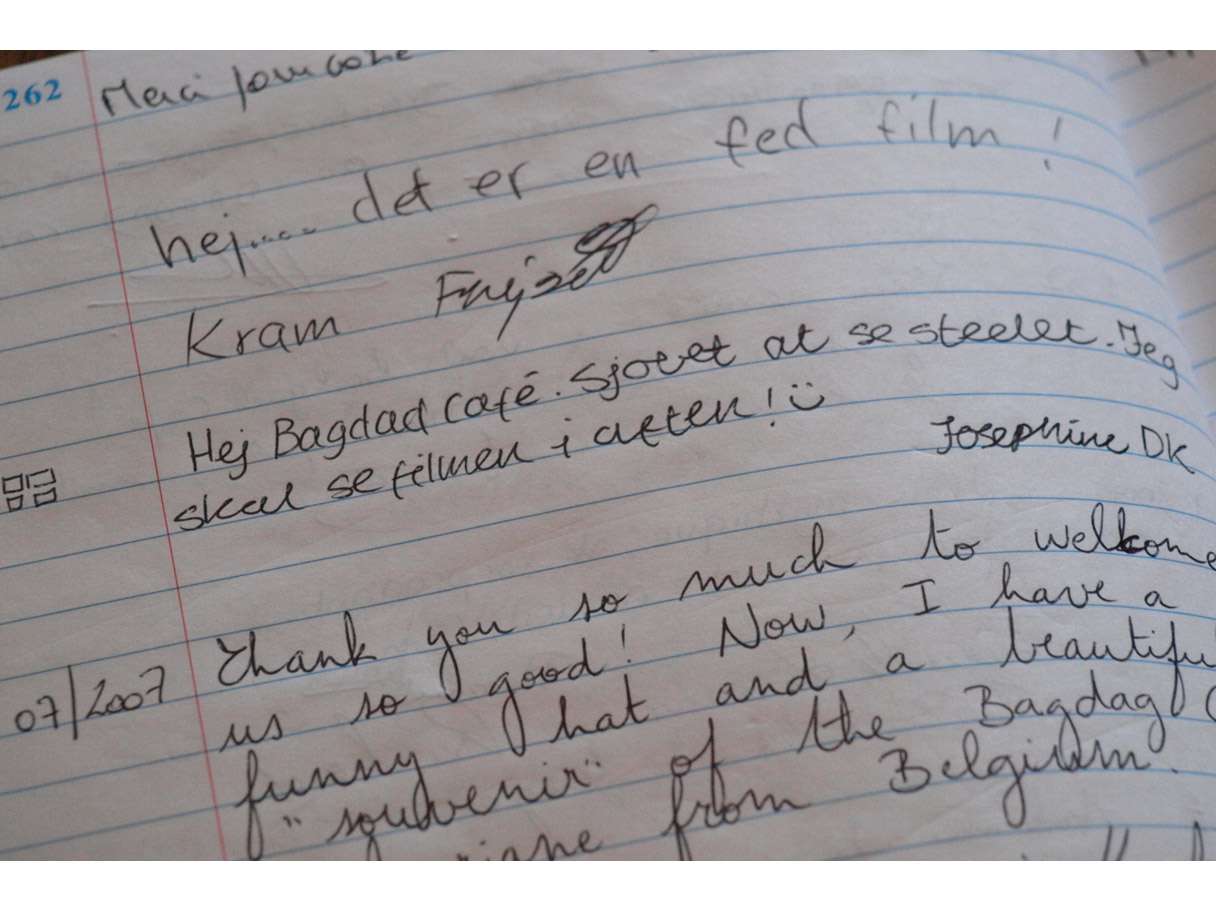 262
Merci pour
hej..... det er en fed film!
Kram
Hej Bagdad Café. Sjovet at se steelet. Jeg
skal se filmen i aften!
Josephine DK
07/2007
Thank you so much to wellcome
us so good! Now, I have a
funny hat and a beautiful
"souvenir" of the Bagdag
from Belgium.